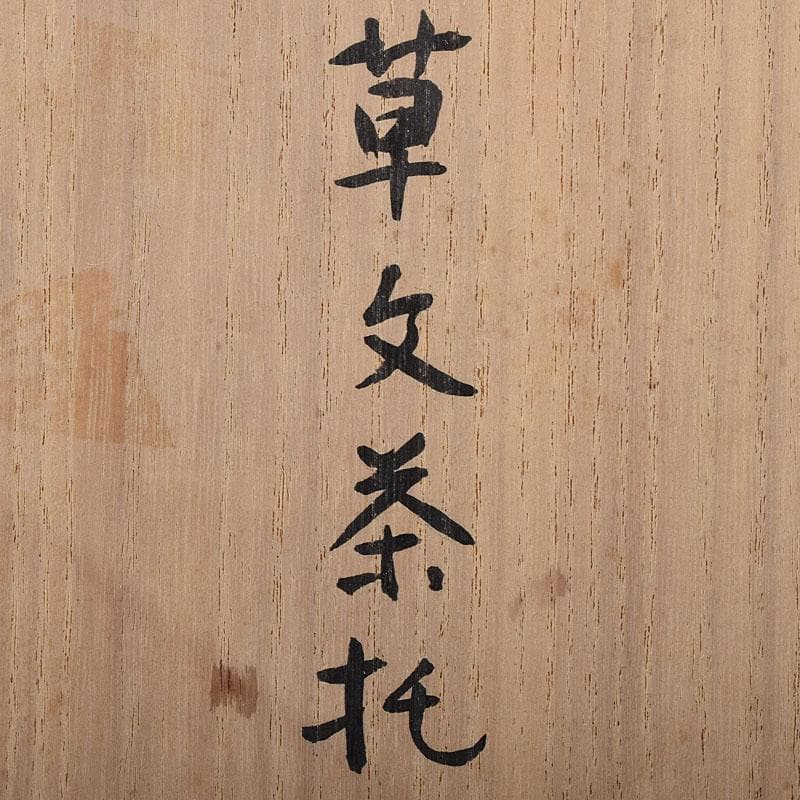 草文茶托